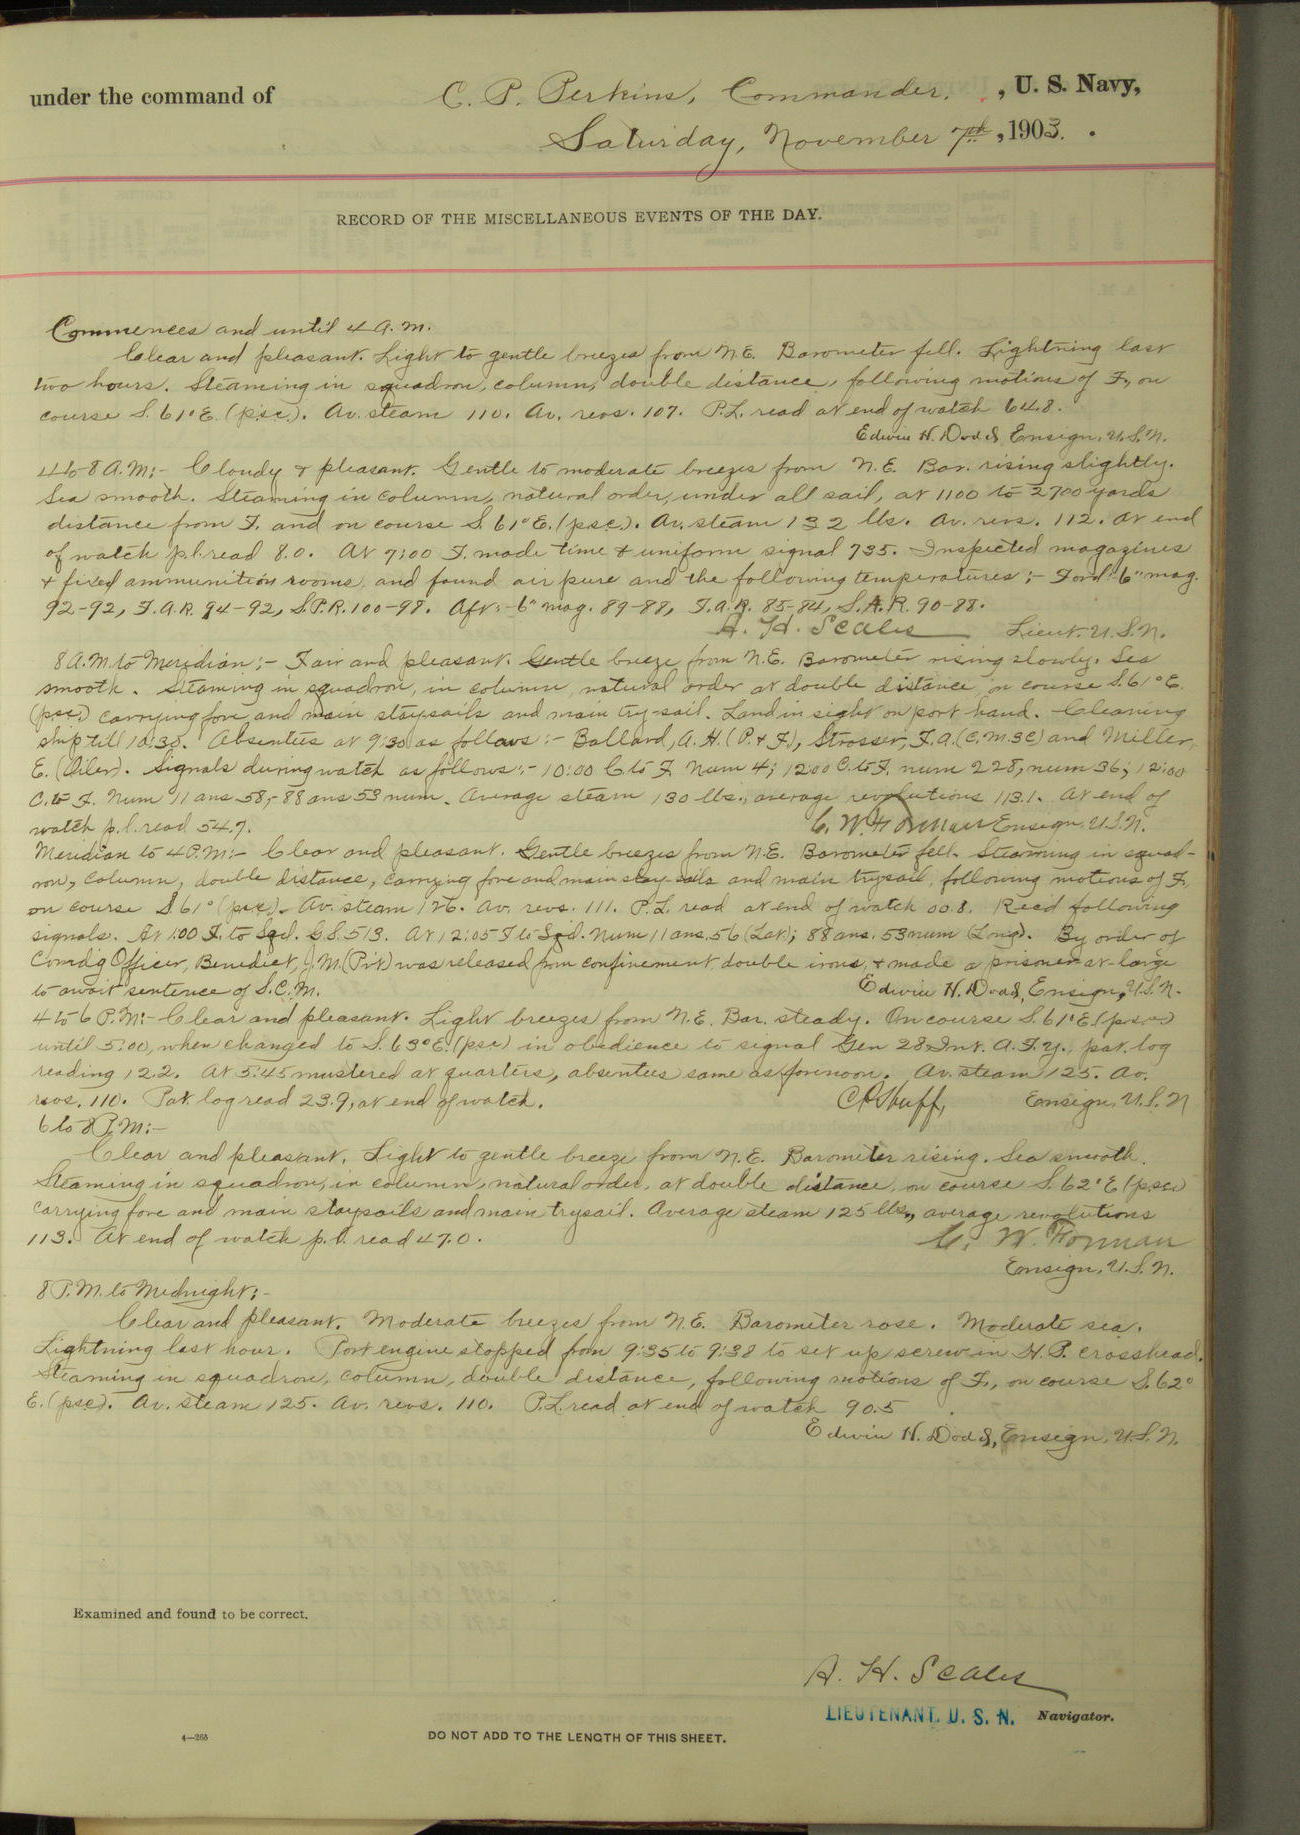 under the command of C. P. Perkins, Commander. , U. S. Navy,
Saturday, November 7th, 1903.
RECORD OF THE MISCELLANEOUS EVENTS OF THE DAY.
Commences and until 4 A.M.
Clear and pleasant. Light to gentle breezes from N.E. Barometer fell. Lightning last
two hours. Steaming in squadron, column, double distance, following motions of F., on
course S. 61° E. (psc.). Av. steam 110. Av. revs. 107. P.L. read at end of watch 64.8.
Edwin H. Dodd, Ensign, U.S.N.
4 to 8 A.M:- Cloudy & pleasant. Gentle to moderate breezes from N.E. Bar. rising slightly.
Sea smooth. Steaming in column, natural order, under all sail, at 1100 to 2700 yards
distance from F. and on course S. 61° E. (psc.). Av. steam 132 lbs. Av. revs. 112. At end
of watch p.l. read 8.0. At 7:00 F. made time & uniform signal 735. Inspected magazines
& fixed ammunition rooms, and found air pure and the following temperatures:- Ford: 6" mag.
92-92, F.A.R. 94-92, S.P.R. 100-98. Aft:- 6" mag. 89-88, F.A.R. 85-84, S.A.R. 90-88.
A. H. Scales Lieut. U.S.N.
8 A.M. to Meridian:- Fair and pleasant. Gentle breeze from N.E. Barometer rising slowly. Sea
smooth. Steaming in squadron, in column, natural order at double distance, on course S. 61° E.
(psc.) carrying fore and main staysails and main try-sail. Land in sight on port hand. Cleaning
ship till 10:30. Absentees at 9:30 as follows:- Ballard, A. H. (P. & F.), Strosser, F. A. (C.M. 3C) and Miller,
E. (Oiler). Signals during watch as follows:- 10:00 C. to F. Num 4; 12:00 C. to F. num 228, num 36; 12:00
C. to F. Num 11 ans 58,- 88 ans 53 num. Average steam 130 lbs., average revolutions 113.1. At end of
watch p.l. read 54.7. C. W. Forman Ensign, U.S.N.
Meridian to 4 P.M:- Clear and pleasant. Gentle breezes from N.E. Barometer fell. Steaming in squad-
ron, column, double distance, carrying fore and main stay-sails and main trysail, following motions of F.,
on course S 61° (psc.). Av. steam 126. Av. revs. 111. P.L. read at end of watch 00.8. Rec'd following
signals. At 1:00 F. to Sqd. G.S. 513. At 12:05 F to Sqd. Num 11 ans. 56 (Lat); 88 ans. 53 num (Long). By order of
Comdg Officer, Benedict, J. M. (Pvt) was released from confinement, double irons, & made a prisoner-at-large
to await sentence of S.C.M. Edwin H. Dodd, Ensign, U.S.N.
4 to 6 P.M:- Clear and pleasant. Light breezes from N.E. Bar. steady. On course S. 61° E. (psc.)
until 5:00, when changed to S. 63° E. (psc) in obedience to signal Gen 28 Int. A.F.Y., pat. log
reading 12.2. At 5.45 mustered at quarters, absentees same as forenoon. Av. steam 125. Av.
revs. 110. Pat. log read 23.9, at end of watch. Ensign, U.S.N
6 to 8 P.M:-
Clear and pleasant. Light to gentle breeze from N.E. Barometer rising. Sea smooth.
Steaming in squadron, in column, natural order, at double distance, on course S. 62° E (psc.)
carrying fore and main staysails and main trysail. Average steam 125 lbs., average revolutions
113. At end of watch p.l. read 47.0. C. W. Forman
Ensign, U.S.N.
8 P.M. to Midnight:-
Clear and pleasant. Moderate breezes from N.E. Barometer rose. Moderate sea.
Lightning last hour. Port engine stopped from 9:35 to 9:38 to set up screw in H.P. crosshead.
Steaming in squadron, column, double distance, following motions of F., on course S. 62°
E. (psc). Av. steam 125. Av. revs. 110. P.L. read at end of watch 90.5
Edwin H. Dodd, Ensign, U.S.N.
Examined and found to be correct.
A. H. Scales
LIEUTENANT, U. S. N. Navigator.
4—268 DO NOT ADD TO THE LENGTH OF THIS SHEET.